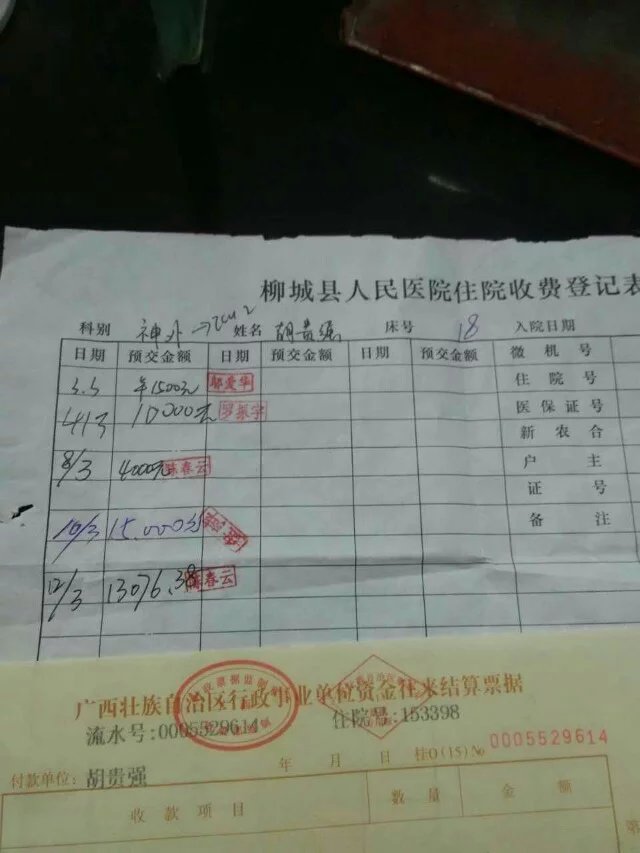 柳城县人民医院住院收费登记表
科别 神外→ICU2 姓名 胡贵强 床号 18 入院日期
日期 预交金额 日期 预交金额 日期 预交金额 微机号
3.3 1500元 住院号
4/3 10000元 医保证号
新农合
8/3 4000元 陈春云 户主
证号
10/3 15.000元 备注
12/3 13076.38 陈春云
广西壮族自治区行政事业单位资金往来结算票据
流水号:0005529614 住院号:153398
年 月 日 桂O(15)No 0005529614
付款单位: 胡贵强
收款项目 数量 金额
第